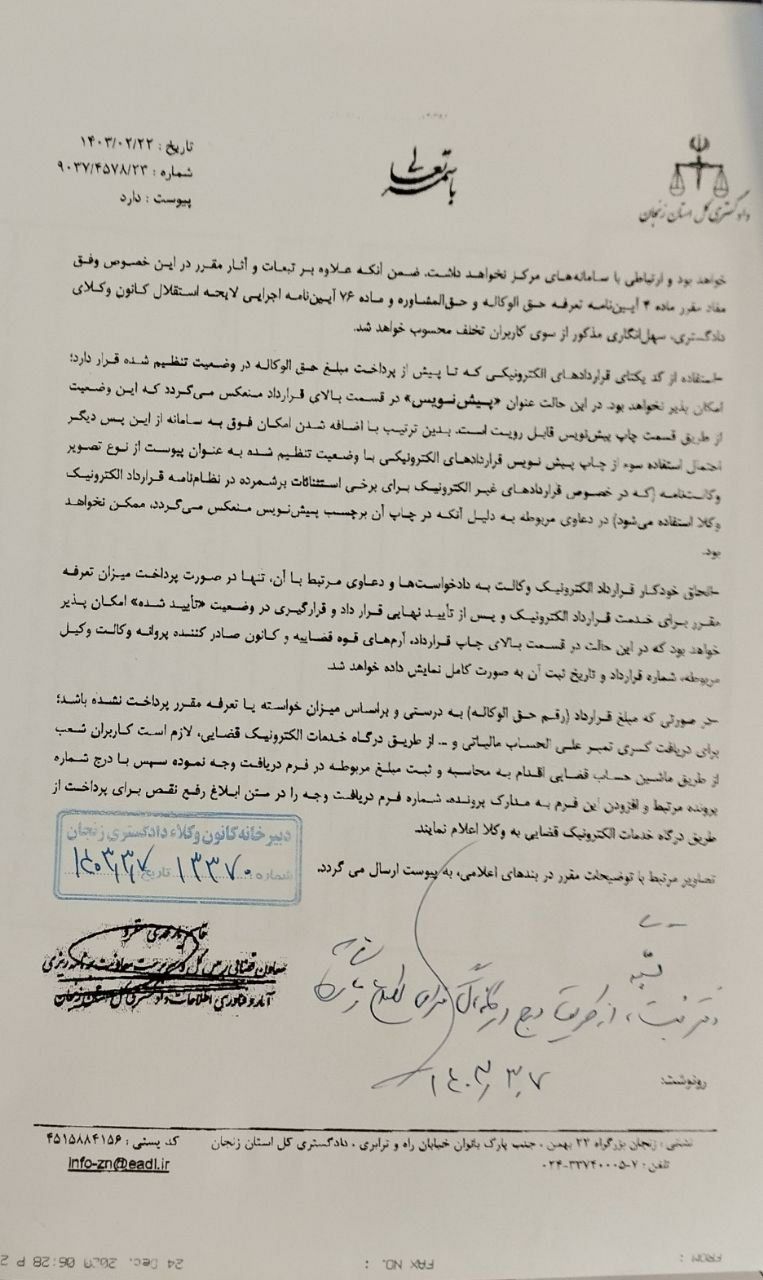 باسمه تعالی
دادگستری کل استان زنجان
تاریخ : ۱۴۰۳/۰۲/۲۲
شماره : ۹۰۳۷/۴۵۷۸/۲۳
پیوست : دارد
خواهد بود و ارتباطی با سامانه‌های مرکز نخواهد داشت. ضمن آنکه علاوه بر تبعات و آثار مقرر در این خصوص وفق
مفاد مقرر ماده ۴ آیین‌نامه تعرفه حق الوکاله و حق‌المشاوره و ماده ۷۶ آیین‌نامه اجرایی لایحه استقلال کانون وکلای
دادگستری، سهل‌انگاری مذکور از سوی کاربران تخلف محسوب خواهد شد.
-استفاده از کد یکتای قراردادهای الکترونیکی که تا پیش از پرداخت مبلغ حق الوکاله در وضعیت تنظیم شده قرار دارد؛
امکان پذیر نخواهد بود. در این حالت عنوان «پیش‌نویس» در قسمت بالای قرارداد منعکس می‌گردد که این وضعیت
از طریق قسمت چاپ پیش‌نویس قابل رویت است. بدین ترتیب با اضافه شدن امکان فوق به سامانه از این پس دیگر
احتمال استفاده سوء از چاپ پیش نویس قراردادهای الکترونیکی با وضعیت تنظیم شده به عنوان پیوست از نوع تصویر
وکالتنامه (که در خصوص قراردادهای غیر الکترونیک برای برخی استثنائات برشمرده در نظام‌نامه قرارداد الکترونیک
وکلا استفاده می‌شود) در دعاوی مربوطه به دلیل آنکه در چاپ آن برچسب پیش‌نویس منعکس می‌گردد، ممکن نخواهد
بود.
-الحاق خودکار قرارداد الکترونیک وکالت به دادخواست‌ها و دعاوی مرتبط با آن، تنها در صورت پرداخت میزان تعرفه
مقرر برای خدمت قرارداد الکترونیک و پس از تأیید نهایی قرار داد و قرارگیری در وضعیت «تأیید شده» امکان پذیر
خواهد بود که در این حالت در قسمت بالای چاپ قرارداد، آرم‌های قوه قضاییه و کانون صادر کننده پروانه وکالت وکیل
مربوطه، شماره قرارداد و تاریخ ثبت آن به صورت کامل نمایش داده خواهد شد.
-در صورتی که مبلغ قرارداد (رقم حق الوکاله) به درستی و براساس میزان خواسته یا تعرفه مقرر پرداخت نشده باشد؛
برای دریافت کسری تمبر علی الحساب مالیاتی و ... از طریق درگاه خدمات الکترونیک قضایی، لازم است کاربران شعب
از طریق ماشین حساب قضایی اقدام به محاسبه و ثبت مبلغ مربوطه در فرم دریافت وجه نموده سپس با درج شماره
پرونده مرتبط و افزودن این فرم به مدارک پرونده، شماره فرم دریافت وجه را در متن ابلاغ رفع نقص برای پرداخت از
طریق درگاه خدمات الکترونیک قضایی به وکلا اعلام نمایند.
تصاویر مرتبط با توضیحات مقرر در بندهای اعلامی، به پیوست ارسال می گردد.
دبیرخانه کانون وکلاء دادگستری زنجان
شماره ۱۳۳۷۰ تاریخ ۱۴۰۳٫۳٫۷
معاون قضائی رئیس کل و سرپرست معاونت برنامه ریزی
آمار و فناوری اطلاعات دادگستری کل استان زنجان
۱۴۰۳٫۳٫۷
رونوشت:
نشانی : زنجان بزرگراه ۲۲ بهمن ، جنب پارک بانوان خیابان راه و ترابری ، دادگستری کل استان زنجان کد پستی : ۴۵۱۵۸۸۴۱۵۶
تلفن : ۷-۳۳۷۴۰۰۰۵-۰۲۴ info-zn@eadl.ir
FROM : FAX NO. : 24 Dec. 2020 06:28 P 2